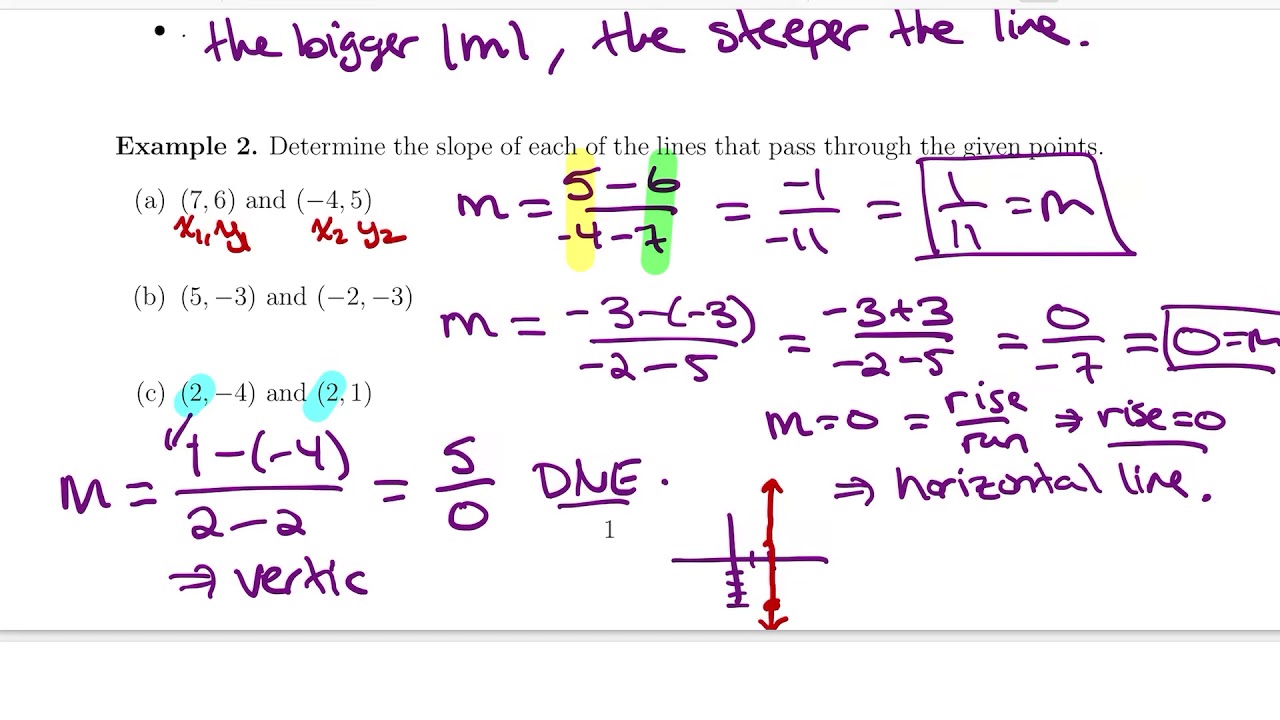 • the bigger |m|, the steeper the line.
Example 2. Determine the slope of each of the lines that pass through the given points.
(a) (7, 6) and (−4, 5)
x₁, y₁ x₂ y₂
m = 5 − 6 / -4 − 7 = -1 / -11 = 1/11 = m
(b) (5, −3) and (−2, −3)
m = -3-(-3) / -2-5 = -3+3 / -2-5 = 0 / -7 = 0=m
(c) (2, −4) and (2, 1)
m = 1-(-4) / 2-2 = 5/0 DNE.
m=0 = rise/run ⇒ rise=0
⇒ horizontal line.
1
⇒ vertic